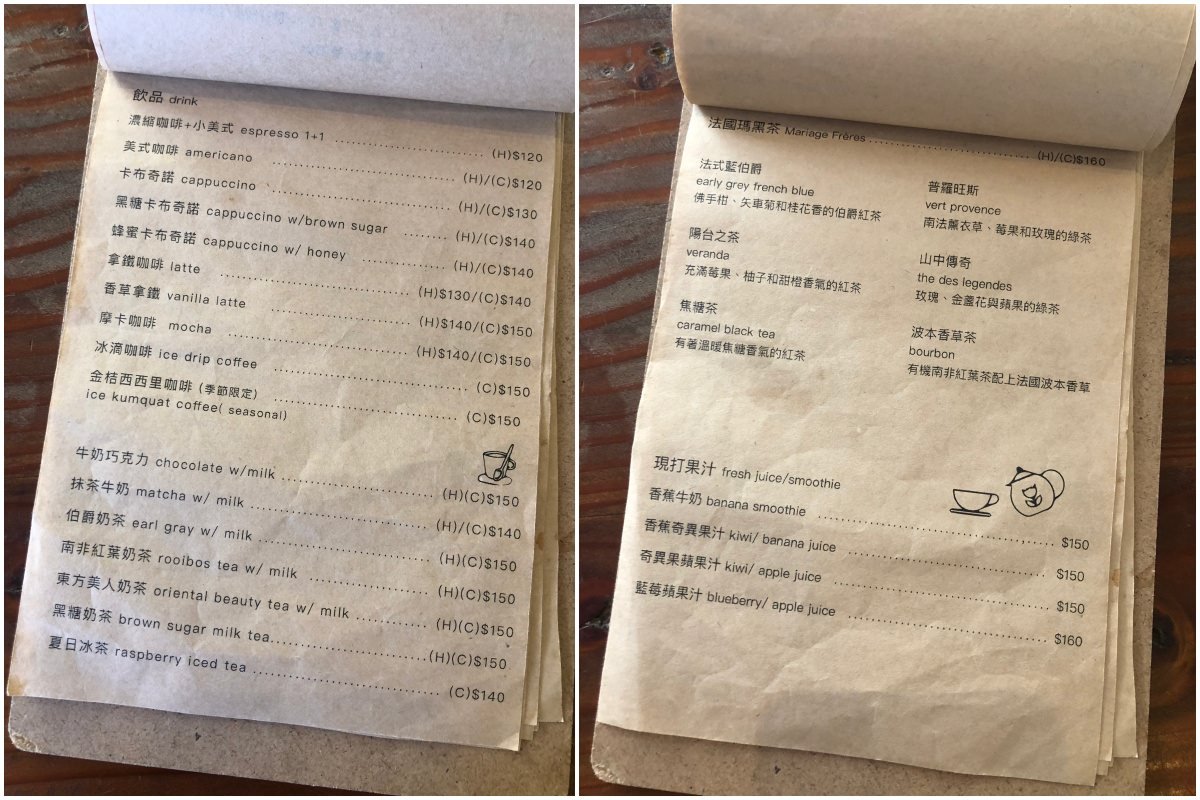 飲品 drink
濃縮咖啡+小美式 espresso 1+1 (H)$120
美式咖啡 americano (H)/(C)$120
卡布奇諾 cappuccino (H)/(C)$130
黑糖卡布奇諾 cappuccino w/brown sugar (H)/(C)$140
蜂蜜卡布奇諾 cappuccino w/ honey (H)/(C)$140
拿鐵咖啡 latte (H)$130/(C)$140
香草拿鐵 vanilla latte (H)$140/(C)$150
摩卡咖啡 mocha (H)$140/(C)$150
冰滴咖啡 ice drip coffee (C)$150
金桔西西里咖啡 (季節限定) (C)$150
ice kumquat coffee( seasonal)
牛奶巧克力 chocolate w/milk (H)(C)$150
抹茶牛奶 matcha w/ milk (H)/(C)$140
伯爵奶茶 earl gray w/ milk (H)(C)$150
南非紅葉奶茶 rooibos tea w/ milk (H)(C)$150
東方美人奶茶 oriental beauty tea w/ milk (H)(C)$150
黑糖奶茶 brown sugar milk tea (H)(C)$150
夏日冰茶 raspberry iced tea (C)$140
法國瑪黑茶 Mariage Frères (H)/(C)$160
法式藍伯爵
early grey french blue
佛手柑、矢車菊和桂花香的伯爵紅茶
陽台之茶
veranda
充滿莓果、柚子和甜橙香氣的紅茶
焦糖茶
caramel black tea
有著溫暖焦糖香氣的紅茶
普羅旺斯
vert provence
南法薰衣草、莓果和玫瑰的綠茶
山中傳奇
the des legendes
玫瑰、金盞花與蘋果的綠茶
波本香草茶
bourbon
有機南非紅葉茶配上法國波本香草
現打果汁 fresh juice/smoothie
香蕉牛奶 banana smoothie $150
香蕉奇異果汁 kiwi/ banana juice $150
奇異果蘋果汁 kiwi/ apple juice $150
藍莓蘋果汁 blueberry/ apple juice $160